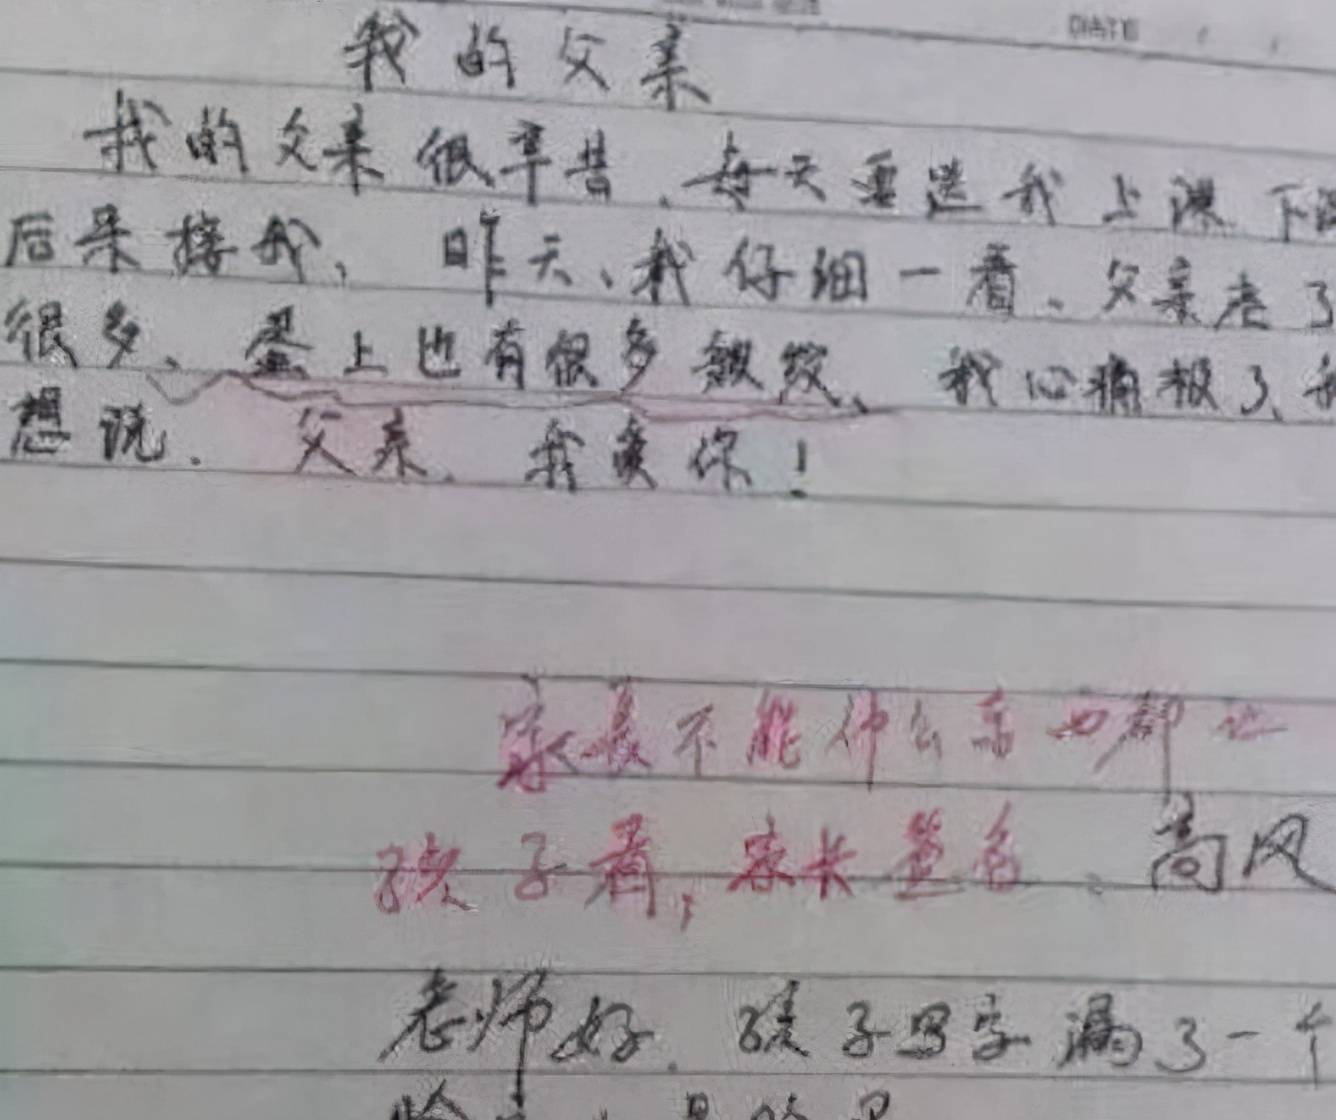 DATE
我的父亲
我的父亲很辛苦、每天要送我上课、下课
后来接我、昨天、我仔细一看、父亲老了
很多、蛋上也有很多皱纹、我心痛极了、我
想说、父亲、我爱你！
家长不能什么东西都让
孩子看，家长签名、高风
老师好、孩子写字漏了一个